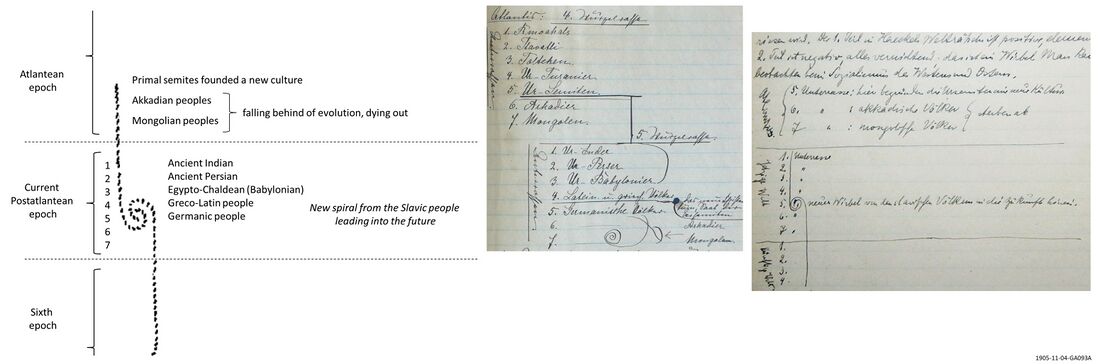 Atlantean
epoch
Primal semites founded a new culture
Akkadian peoples
Mongolian peoples
falling behind of evolution, dying out
Current
Postatlantean
epoch
1 Ancient Indian
2 Ancient Persian
3 Egypto-Chaldean (Babylonian)
4 Greco-Latin people
5 Germanic people
6
7
New spiral from the Slavic people
leading into the future
Sixth
epoch
Atlantis: 4. Wurzelrasse
1. Rmoahals
2. Tlavatli
3. Tolteken
4. Ur-Turanier
5. Ur-Semiten
6. Akkadier
7. Mongolen.
5. Wurzelrasse
1. Ur-Inder
2. Ur-Perser
3. Ur-Babylonier
4. Latein. u. griech. Völker
5. Germanische Völker
6.
7.
Akkadier
Mongolen.
2. Teil ist negativ, alles vernichtend. das ist ein Wirbel. Man kann
beobachten beim Sozialismus des Westens und Ostens.
5. Unterrasse: hier begründen die Ursemiten eine neue Kultur
6. " : akkadische Völker
7 " : mongolische Völker
sterben ab
1. Unterrasse
2. "
3. "
4. "
5. " neuer Wirbel von den slavischen Völkern in die Zukunft hinein.
6. "
7. "
1.
2.
3.
4.
1905-11-04-GA093A